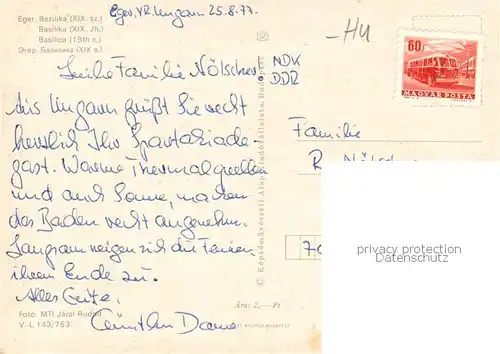 Eger. Bazilika (XIX. sz.)
Basilika (XIX. Jh.)
Basilica (19th c.)
Эгер. Базилика (XIX в.)
Eger, VR Ungarn 25.8.77.
HU
60
MAGYAR POSTA
NDK
DDR
Liebe Familie Nölscher
Aus Ungarn grüßt Sie recht
herzlich Ihr Spartakiade-
gast. Warme Thermalquellen
und auch Sonne, machen
das Baden recht angenehm.
Langsam neigen sich die Ferien
ihrem Ende zu.
Alles Gute,
Képzőművészeti Alap Kiadóvállalata, Budapest
Familie
70
privacy protection
Foto: MTI Járai Rudolf
V.-L 143/753
Ára: 2,— Ft